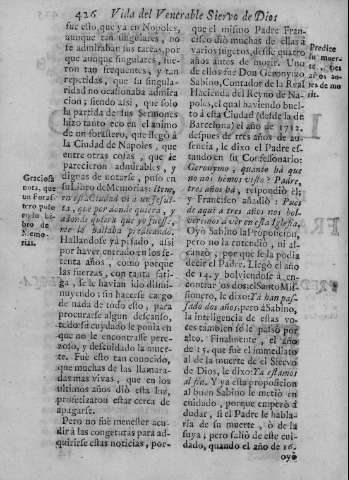 426 Vida del Venerable Siervo de Dios
fue ello, que ya en Napoles,
aunque tan singulares, no
se admiraban sus tareas, por
que aunque singulares, fue
ron tan frequentes, y tan
repetidas, que la singulari-
dad no ocasionaba admira
cion; siendo assi, que solo
la partida de sus Sermones
hizo tanto eco en el animo
de un forastero, que llegó à
la Ciudad de Napoles, que
entre otras cosas, que le
parecieron admirables, y
dignas de notarse, puso en
su Libro de Memorias: Iten,
en esta Ciudad vi a un Jesui-
ta, que por donde quiera, y
adonde quiera que yo fuesse,
me le hallaba predicando.
Hallandose yà pesado, assi
por haver entrado en los se-
tenta años, como porque
las fuerzas, con tanta fati-
ga, se le havian ido dismi-
nuyendo: sin hacerse cargo
de nada de todo ello, para
procurarse algun descanso,
todo su cuydado le ponia en
que no le encontrasse pere-
zoso, y descuidado la muer-
te. Fue esto tan conocido,
que muchas de las llamara-
das mas vivas, que en los
ultimos años diò esta luz,
profetizaron estar cerca de
apagarse.
Pero no fuè menester acu-
dir à las congeturas para ad-
quirirse estas noticias, por-
Graciosa
nota, que
un Foras-
tero puso
en su Li-
bro de
Memo-
rias.
que el mismo Padre Fran-
cisco diò muchas de ellas à
varios sugetos, desde quatro
años antes de morir. Uno
de ellos fue Don Geronymo
Sabino, Contador de la Real
Hacienda del Reyno de Na-
poles, el qual haviendo buel-
to à esta Ciudad (desde la de
Barcelona) el año de 1712.
despues de tres años de au-
sencia, le dixo el Padre es-
tando en su Confessonario:
Geronymo, quanto hà que
no nos hemos visto? Padre,
tres años hà, respondiò el;
y Francisco añadiò: Pues
de aqui à tres años nos bol-
verèmos à ver en esta Iglesia.
Oyò Sabino la proposicion,
pero no la entendiò, ni al-
canzò, por que se la podia
decir el Padre. Llegò el año
de 14. y bolviendose à en-
contrar los dos, el Santo Mis-
sionero, le dixo: Yà han pas-
sado dos años; pero à Sabino,
la inteligencia de estas vo-
ces tambien se le passò por
alto. Finalmente, el año
de 15. que fue el immediato
al de la muerte de el Siervo
de Dios, le dixo: Yà estamos
al fin. Y ya esta proposicion
al buen Sabino le metiò en
cuidado, porque empezò à
dudar, si el Padre le habla-
ria de su muerte, ò de la
suya; pero saliò de este cui-
dado, quando el año de 16.
oyò
Predice
su muerte